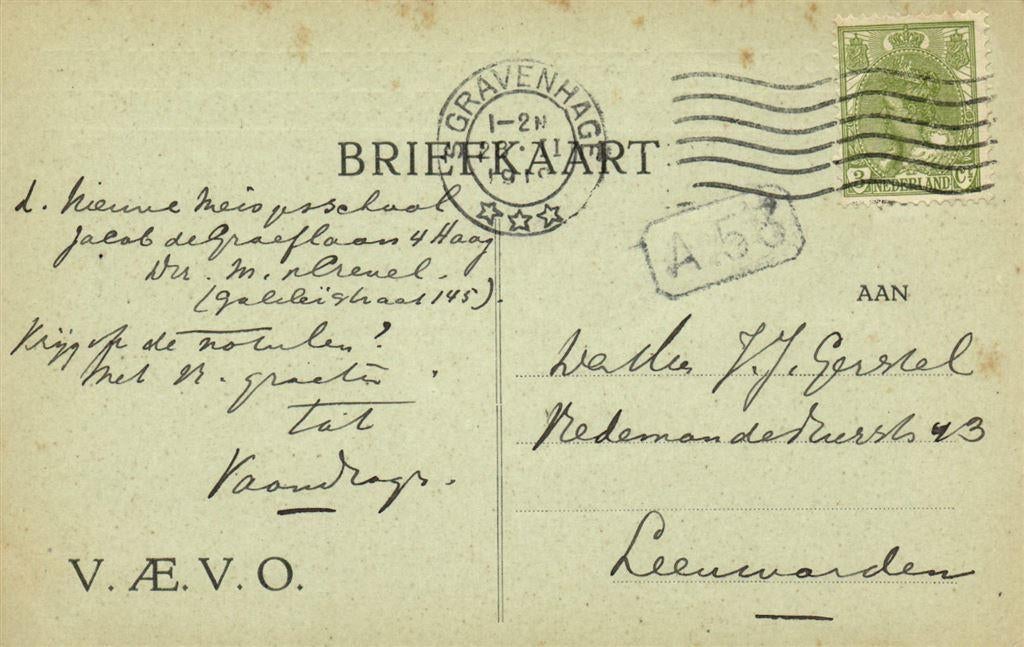 'S GRAVENHAGE
1-2N
1910
3 NEDERLAND Ct
BRIEFKAART
A 53
d. Nieuwe Meisjesschool
Jacob de Graeflaan 4 Haag
Dir. M. v Crevel.
(Galileïstraat 145).
Krijg op de notulen?
Met vr. groeten
tot
Vaandrager.
V. Æ. V. O.
AAN
J. J. Gerstel
43
Leeuwarden